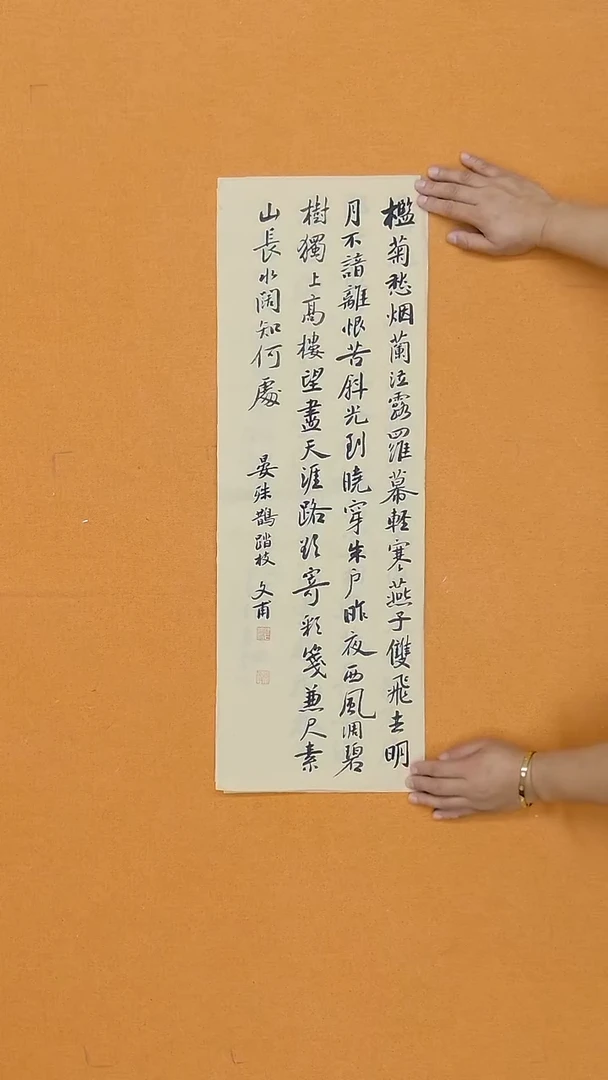 檻菊愁烟蘭泣露羅幕軽寒燕子雙飛去明
月不諳離恨苦斜光到曉穿朱户昨夜西風凋碧
樹獨上高樓望盡天涯路欲寄彩箋兼尺素
山長水闊知何處
晏殊鵲踏枝 文甫